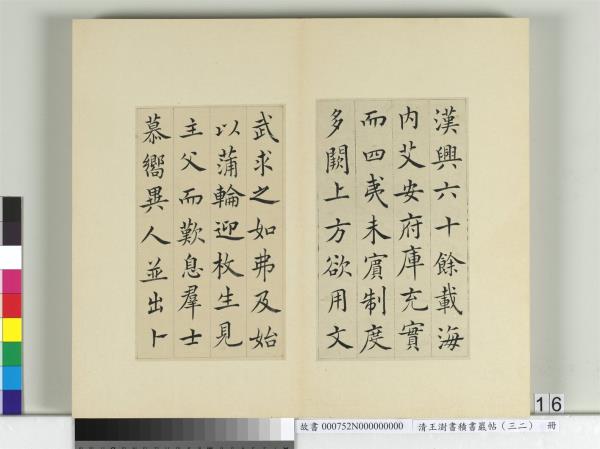 漢興六十餘載海
內艾安府庫充實
而四夷未賓制度
多闕上方欲用文
武求之如弗及始
以蒲輪迎枚生見
主父而歎息羣士
慕嚮異人並出卜
16
故書 000752N000000000 清王澍書積書巖帖（三二） 冊